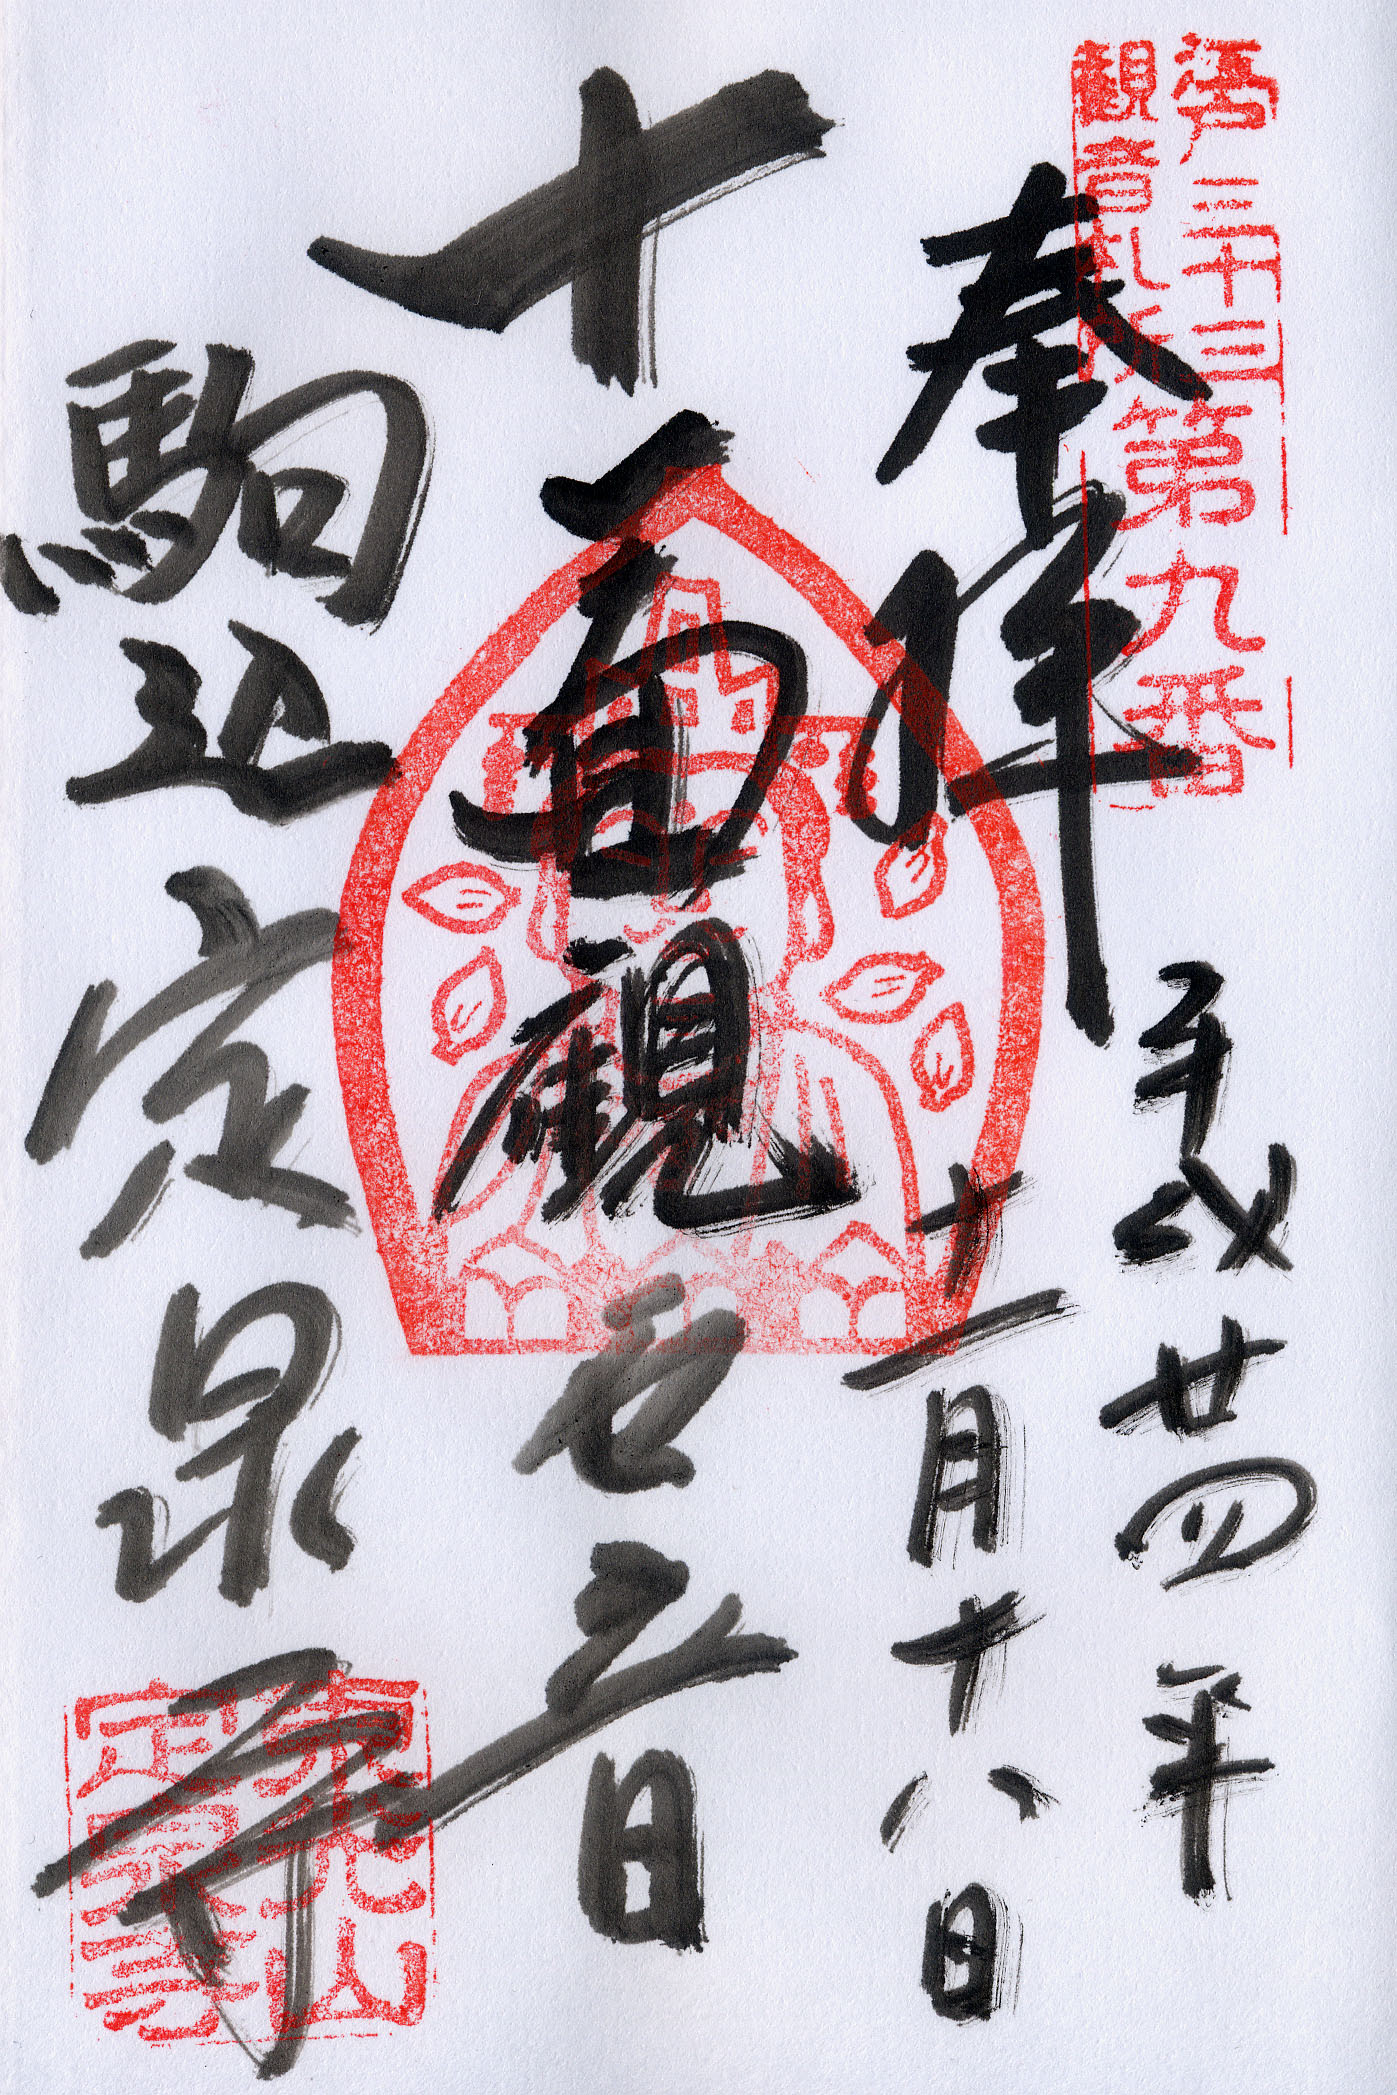 江戸三十三
観音札所
第九番
奉拝
平成廿四年
十一月十八日
十一面観世音
駒込定泉寺
東光山
定泉寺